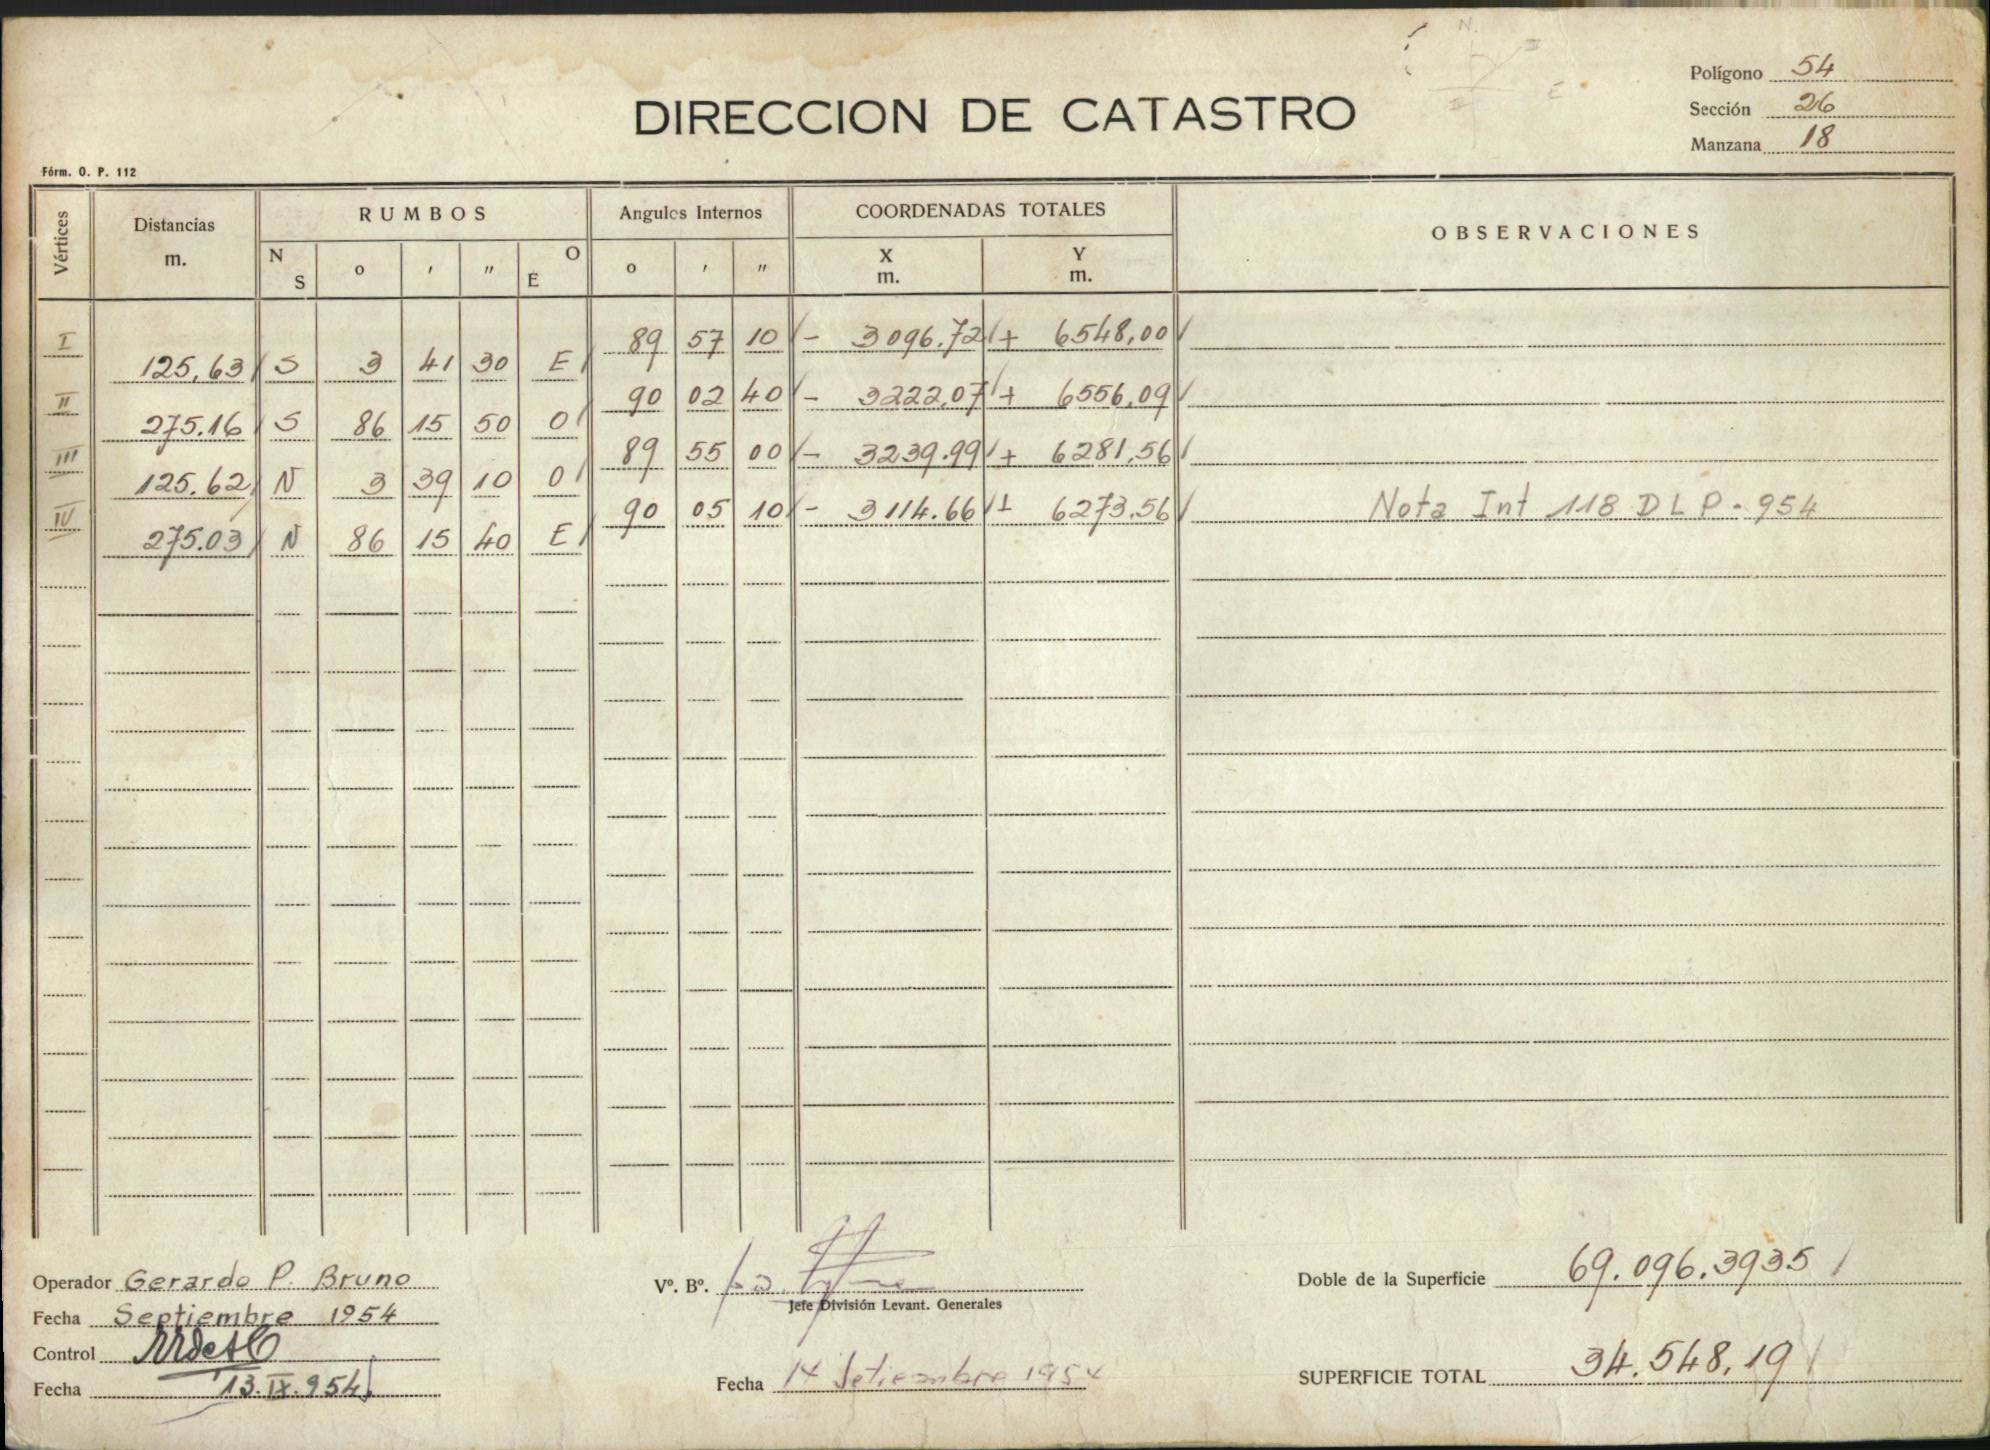 Polígono 54
DIRECCION DE CATASTRO
Sección 26
Manzana 18
Fórm. O. P. 112
Vértices Distancias m. RUMBOS Angulos Internos COORDENADAS TOTALES OBSERVACIONES
N S o ' " O E o ' " X m. Y m.
I 89 57 10 - 3096.72 + 6548,00
125,63 S 3 41 30 E
II 90 02 40 - 3222,07 + 6556,09
275.16 S 86 15 50 O
III 89 55 00 - 3239.99 + 6281,56
125.62 N 3 39 10 O
IV 90 05 10 - 3114.66 + 6273.56 Nota Int 118 D L P - 954
275.03 N 86 15 40 E
Operador Gerardo P. Bruno
Vº. Bº.
Jefe División Levant. Generales
Doble de la Superficie 69.096.3935
Fecha Septiembre 1954
Control
Fecha 13.IX.954
Fecha 14 Setiembre 1954
SUPERFICIE TOTAL 34.548,19